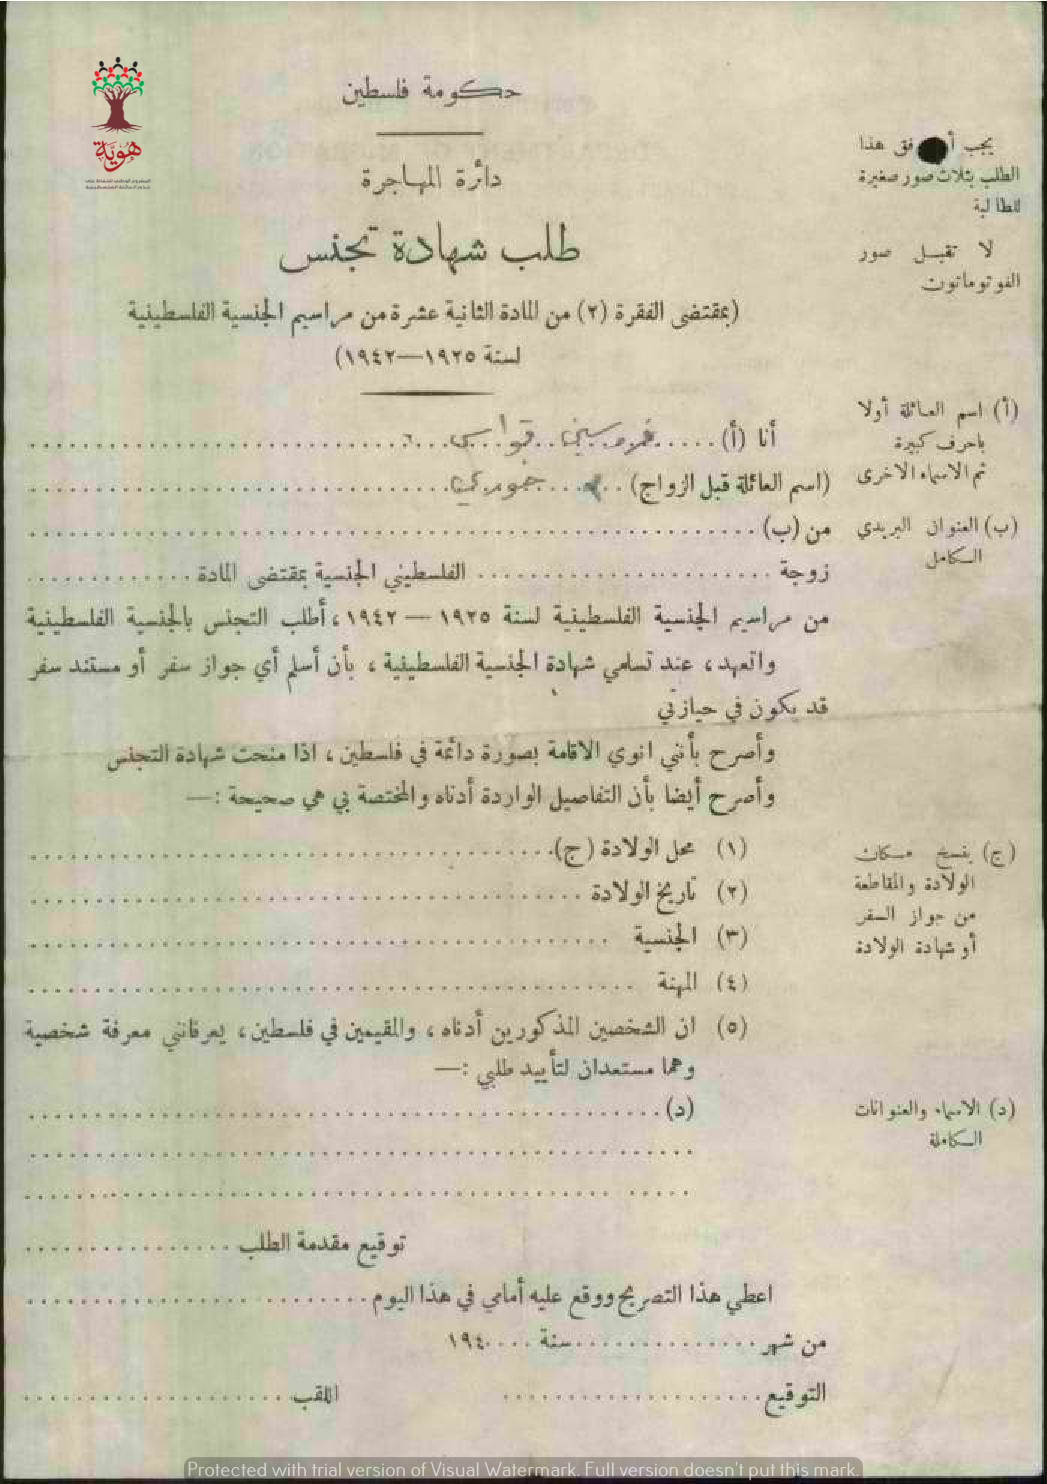 هوية
حكومة فلسطين
دائرة المهاجرة
طلب شهادة تجنس
(بمقتضى الفقرة (٢) من المادة الثانية عشرة من مراسيم الجنسية الفلسطينية
لسنة ١٩٢٥—١٩٤٢)
يجب أ فق هذا
الطلب بثلاث صور صغيرة
للطالبة
لا تقبل صور
الفوتوماتون
أنا (أ) ..... قواس .....
(اسم العائلة قبل الزواج) ..... خوري .....
من (ب) .....
زوجة ..... الفلسطيني الجنسية بمقتضى المادة .....
من مراسيم الجنسية الفلسطينية لسنة ١٩٢٥ — ١٩٤٢، أطلب التجنس بالجنسية الفلسطينية
واتعهد، عند تسلمي شهادة الجنسية الفلسطينية، بأن أسلم أي جواز سفر أو مستند سفر
قد يكون في حيازتي
وأصرح بأنني انوي الاقامة بصورة دائمة في فلسطين، اذا منحت شهادة التجنس
وأصرح أيضا بأن التفاصيل الواردة أدناه والمختصة بي هي صحيحة :—
(أ) اسم العائلة أولا
باحرف كبيرة
ثم الاسماء الاخرى
(ب) العنوان البريدي
الكامل
(١) محل الولادة (ج) .....
(٢) تاريخ الولادة .....
(٣) الجنسية .....
(٤) المهنة .....
(٥) ان الشخصين المذكورين أدناه، والمقيمين في فلسطين، يعرفانني معرفة شخصية
وهما مستعدان لتأييد طلبي :—
(د) .....
(ج) بنسخ مكان
الولادة والمقاطعة
من جواز السفر
أو شهادة الولادة
(د) الاسماء والعنوانات
الكاملة
توقيع مقدمة الطلب .....
اعطي هذا التصريح ووقع عليه أمامي في هذا اليوم .....
من شهر ..... سنة .... ١٩٤
التوقيع ..... اللقب .....
Protected with trial version of Visual Watermark. Full version doesn't put this mark.